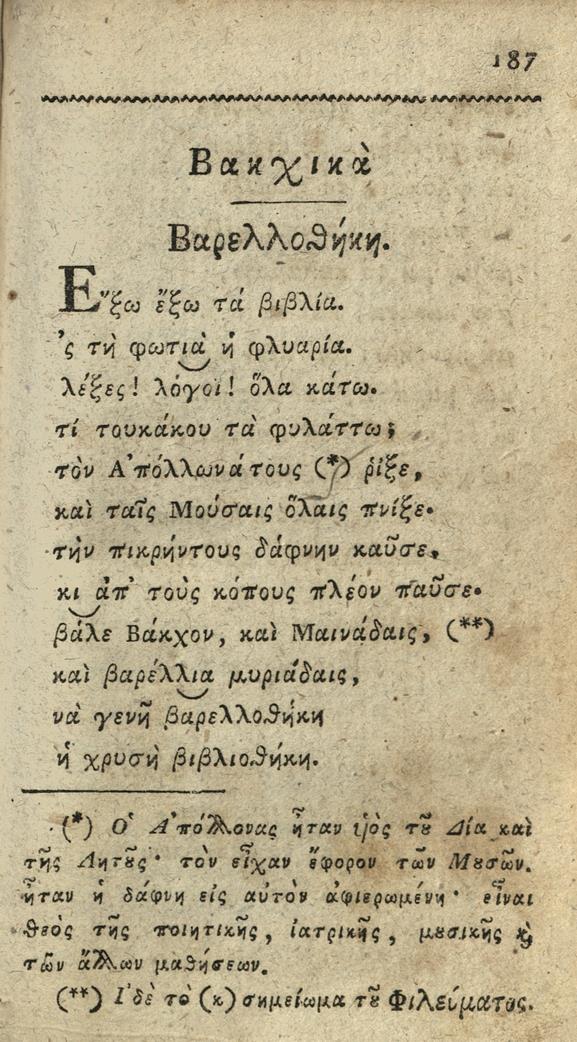 187
Βακχικὰ
Βαρελλοθήκη.
Ἔξω ἔξω τά βιβλία.
'ς τὴ φωτιὰ ἡ φλυαρία.
λέξες! λόγοι! ὅλα κάτω.
τί τουκάκου τὰ φυλάττω;
τὸν Ἀπόλλωνάτους (*) ῥίξε,
καὶ ταῖς Μούσαις ὅλαις πνίξε.
τὴν πικρήντους δάφνην καῦσε,
κι ἀπ' τοὺς κόπους πλέον παῦσε.
βάλε Βάκχον, καὶ Μαινάδαις, (**)
καὶ βαρέλλια μυριάδαις,
νὰ γενῆ βαρελλοθήκη
ἡ χρυσὴ βιβλιοθήκη.
(*) Ὁ Ἀπόλλονας ἦταν ὑιὸς τȣ͂ Δία καὶ
τῆς Λητȣ͂ς· τὸν εἶχαν ἔφορον τῶν Μȣσῶν.
ἦταν ἡ δάφνη εἰς αὐτὸν ἀφιερωμένη· εἶναι
θεὸς τῆς ποιητικῆς, ἰατρικῆς, μȣσικῆς ϗ̀
τῶν ἄλλων μαθήσεων.
(**) Ἰδὲ τὸ (κ) σημείωμα τȣ͂ Φιλεύματος.